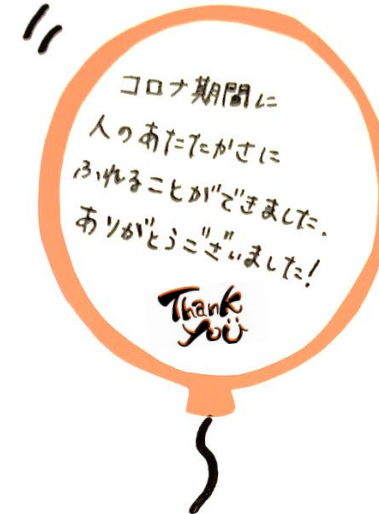 コロナ期間に
人のあたたかさに
ふれることができました.
ありがとうございました!
Thank
you